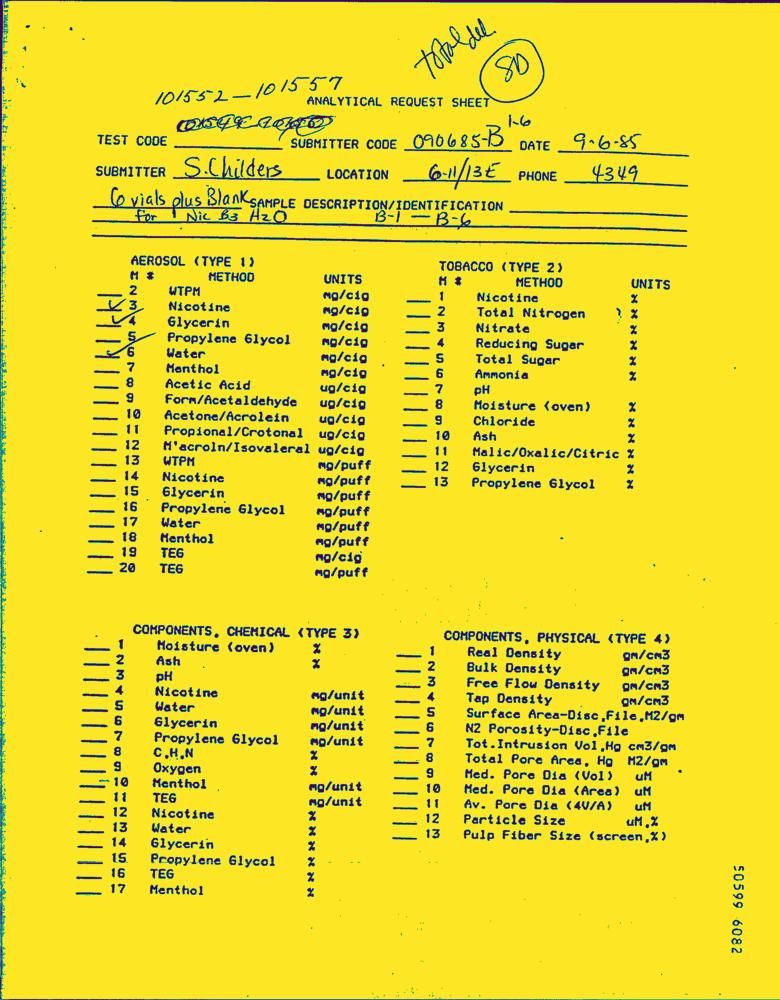 total del
80
101552 - 101557
ANALYTICAL REQUEST SHEET
TEST CODE SUBMITTER CODE 090685-B 1-6 DATE 9-6-85
SUBMITTER S. Childers LOCATION 611/13E PHONE 4349
6 vials plus Blank SAMPLE DESCRIPTION/IDENTIFICATION
for Nic B3 H2O B-1 — B-6
AEROSOL (TYPE 1)
M # METHOD UNITS
2 WTPM mg/cig
✓ 3 Nicotine mg/cig
✓ 4 Glycerin mg/cig
5 Propylene Glycol mg/cig
✓ 6 Water mg/cig
7 Menthol mg/cig
8 Acetic Acid ug/cig
9 Form/Acetaldehyde ug/cig
10 Acetone/Acrolein ug/cig
11 Propional/Crotonal ug/cig
12 M'acroln/Isovaleral ug/cig
13 WTPM mg/puff
14 Nicotine mg/puff
15 Glycerin mg/puff
16 Propylene Glycol mg/puff
17 Water mg/puff
18 Menthol mg/puff
19 TEG mg/cig
20 TEG mg/puff
TOBACCO (TYPE 2)
M # METHOD UNITS
1 Nicotine %
2 Total Nitrogen %
3 Nitrate %
4 Reducing Sugar %
5 Total Sugar %
6 Ammonia %
7 pH
8 Moisture (oven) %
9 Chloride %
10 Ash %
11 Malic/Oxalic/Citric %
12 Glycerin %
13 Propylene Glycol %
COMPONENTS, CHEMICAL (TYPE 3)
1 Moisture (oven) %
2 Ash %
3 pH
4 Nicotine mg/unit
5 Water mg/unit
6 Glycerin mg/unit
7 Propylene Glycol mg/unit
8 C,H,N %
9 Oxygen %
10 Menthol mg/unit
11 TEG mg/unit
12 Nicotine %
13 Water %
14 Glycerin %
15 Propylene Glycol %
16 TEG %
17 Menthol %
COMPONENTS, PHYSICAL (TYPE 4)
1 Real Density gm/cm3
2 Bulk Density gm/cm3
3 Free Flow Density gm/cm3
4 Tap Density gm/cm3
5 Surface Area-Disc,File,M2/gm
6 N2 Porosity-Disc,File
7 Tot.Intrusion Vol,Hg cm3/gm
8 Total Pore Area, Hg M2/gm
9 Med. Pore Dia (Vol) uM
10 Med. Pore Dia (Area) uM
11 Av. Pore Dia (4V/A) uM
12 Particle Size uM,%
13 Pulp Fiber Size (screen,%)
50599 6082